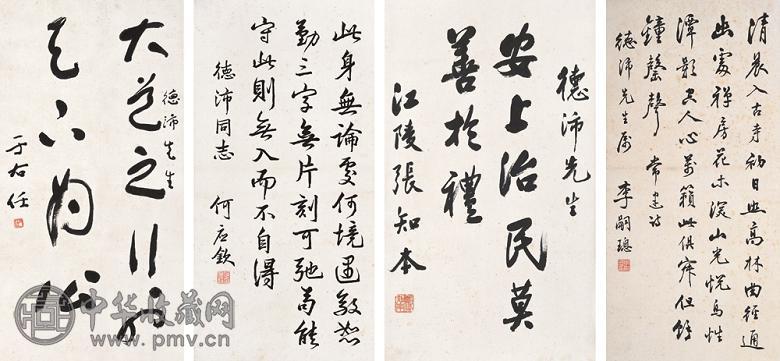 清晨入古寺初日照高林曲徑通
幽處禪房花木深山光悅鳥性
潭影空人心萬籟此俱寂但餘
鐘磬聲 常建詩
德沛先生屬 李嗣璁
德沛先生
安上治民莫
善於禮
江陵張知本
此身無論處何境遇敬恕
勤三字無片刻可弛苟能
守此則無入而不自得
德沛同志
何应欽
德沛先生
大道之行也
天下為公
于右任
中华收藏网
www.pmv.cn